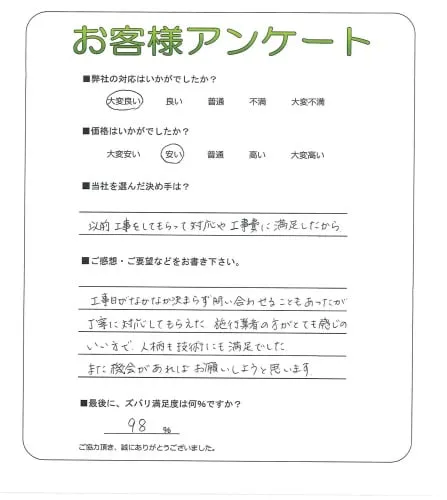 お客様アンケート
■弊社の対応はいかがでしたか?
大変良い 良い 普通 不満 大変不満
■価格はいかがでしたか?
大変安い 安い 普通 高い 大変高い
■当社を選んだ決め手は?
以前工事をしてもらって対応や工事費に満足したから
■ご感想・ご要望などをお書き下さい。
工事日がなかなか決まらず問い合わせることもあったが
丁寧に対応してもらえた 施行業者の方がとても感じの
いい方で、人柄も技術にも満足でした
また機会があればお願いしようと思います
■最後に、ズバリ満足度は何%ですか?
98 %
ご協力頂き、誠にありがとうございました。